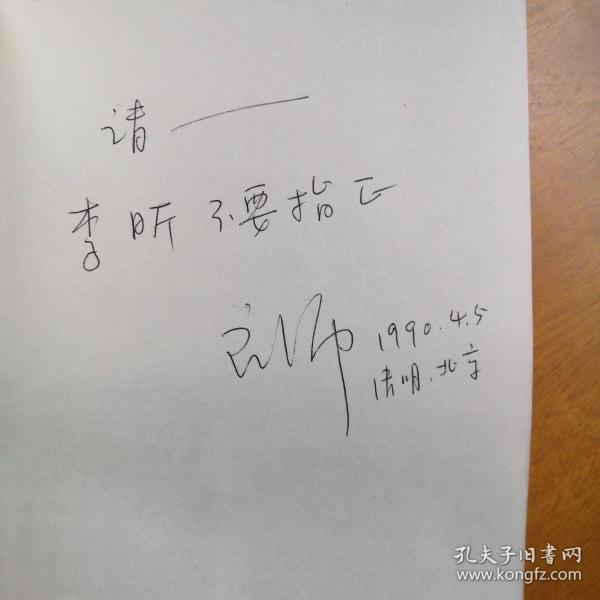 请——
李昕不要指正
1990.4.5
清明.北京
孔夫子旧書网
www.kongfz.com